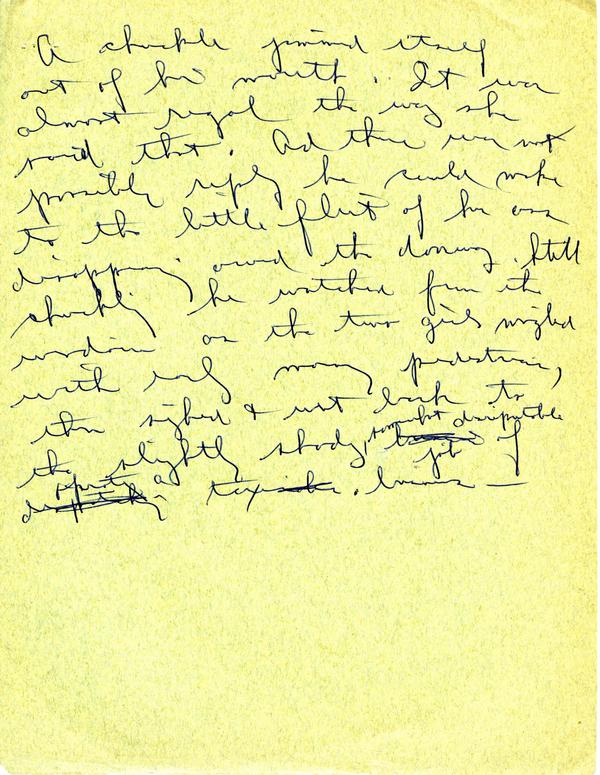 A chuckle jimmied itself
out of his mouth. It was
almost regal the way she
said that. And there was not
possibly reply he could make
to the little flirt of her
disappearing around the doorway. Still
chuckling he watched from the
window as the two girls mingled
with early morning pedestrians,
then sighed & went back to
the slightly shady, somewhat disreputable
job of
operating a taxi business —